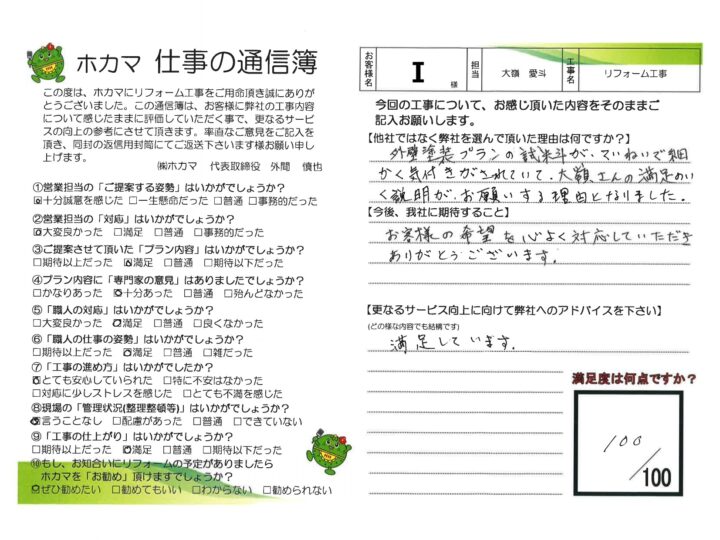 ホカマ 仕事の通信簿
この度は、ホカマにリフォーム工事をご用命頂き誠にありが
とうございました。この通信簿は、お客様に弊社の工事内容
について感じたままに評価していただく事で、更なるサービ
スの向上の参考にさせて頂きます。率直なご意見をご記入を
頂き、同封の返信用封筒にてご返送下さいます様お願い申し
上げます。
㈱ホカマ 代表取締役 外間 慎也
①営業担当の「ご提案する姿勢」はいかがでしょうか?
☑十分誠意を感じた □一生懸命だった □普通 □事務的だった
②営業担当の「対応」はいかがでしょうか?
☑大変良かった □満足 □普通 □事務的だった
③ご提案させて頂いた「プラン内容」はいかがでしょうか?
□期待以上だった ☑満足 □普通 □期待以下だった
④プラン内容に「専門家の意見」はありましたでしょうか?
□かなりあった ☑十分あった □普通 □殆んどなかった
⑤「職人の対応」はいかがでしょか?
□大変良かった ☑満足 □普通 □良くなかった
⑥「職人の仕事の姿勢」はいかがでしょうか?
□期待以上だった ☑満足 □普通 □雑だった
⑦「工事の進め方」はいかがでしたか?
☑とても安心していられた □特に不安はなかった
□対応に少しストレスを感じた □とても不満を感じた
⑧現場の「管理状況(整理整頓等)」はいかがでしょうか?
☑言うことなし □配慮があった □普通 □できていない
⑨「工事の仕上がり」はいかがでしょうか?
□期待以上だった ☑満足 □普通 □期待以下だった
⑩もし、お知合いにリフォームの予定がありましたら
ホカマを「お勧め」頂けますでしょうか?
☑ぜひ勧めたい □勧めてもいい □わからない □勧められない
お客様名 I 様 担当 大嶺 愛斗 工事名 リフォーム工事
今回の工事について、お感じ頂いた内容をそのままご
記入お願いします。
【他社ではなく弊社を選んで頂いた理由は何ですか?】
外壁塗装プランの試料が、ていねいで細
かく気付きがされていて、大嶺さんの満足のい
く説明が、お願いする理由となりました。
【今後、我社に期待すること】
お客様の希望を心よく対応していただき
ありがとうございます。
【更なるサービス向上に向けて弊社へのアドバイスを下さい】
(どの様な内容でも結構です)
満足しています。
満足度は何点ですか?
100
/100